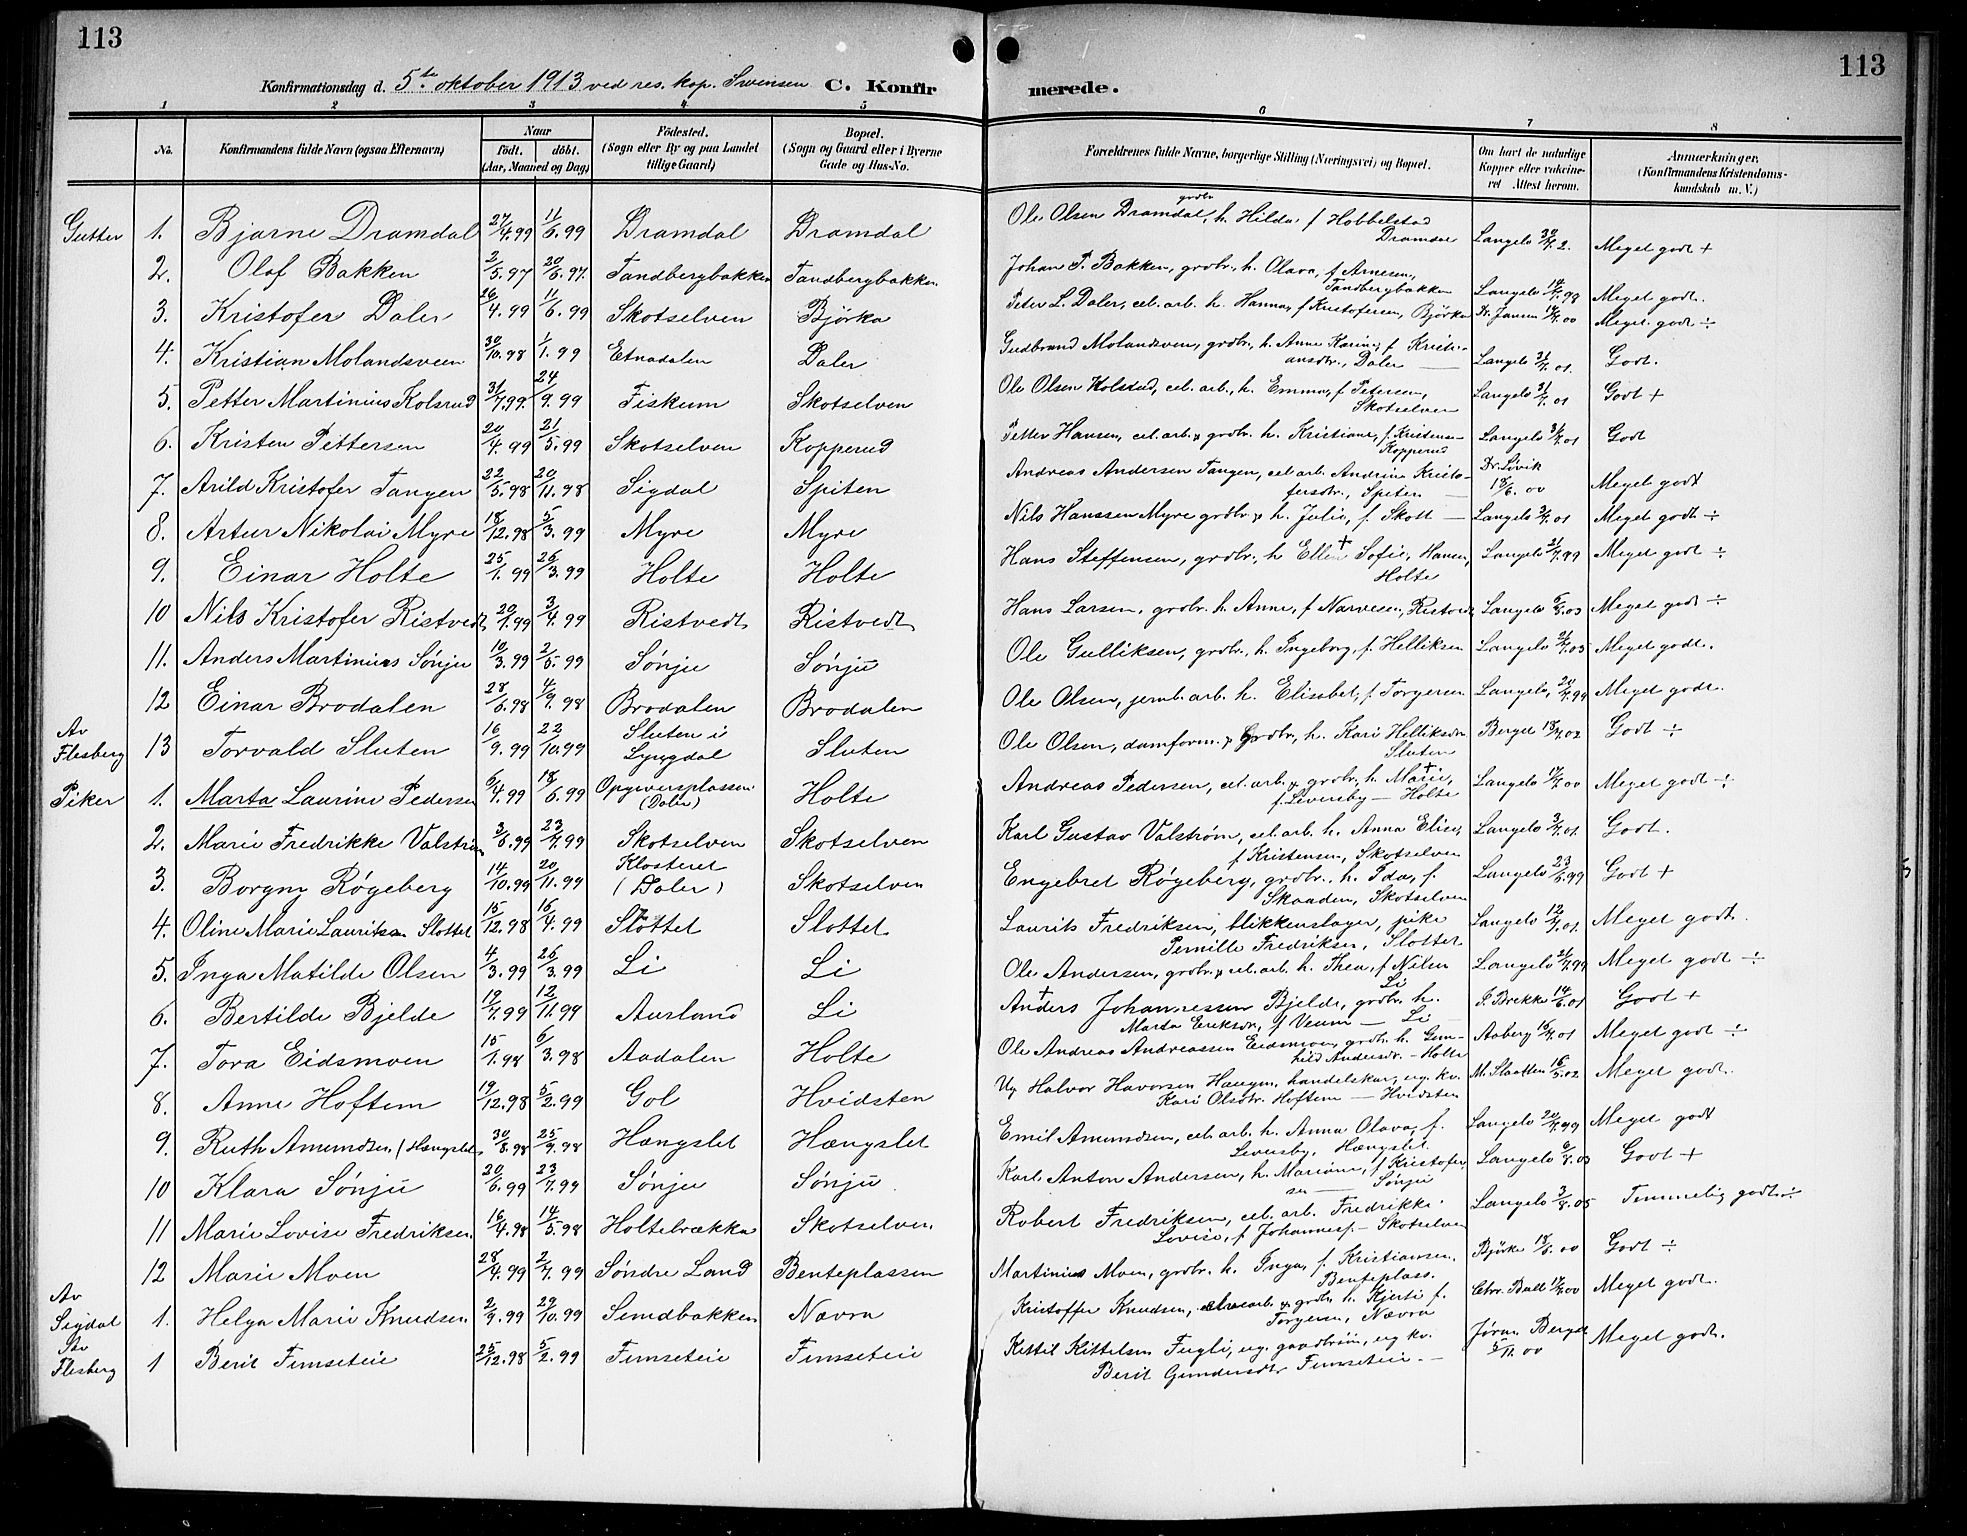 113
113
Konfirmationsdag d. 5te oktober 1913 ved res. kap. Svensen C. Konfir
merede.
1 2 3 4 5 6 7 8
No.
Konfirmandens fulde Navn (ogsaa Efternavn)
Naar
født. døbt.
(Aar, Maaned og Dag)
Födested.
(Sogn eller By og paa Landet
tillige Gaard)
Bopæl.
(Sogn og Gaard eller i Byerne
Gade og Hus-No.
Forældrenes fulde Navne, borgerlige Stilling (Næringsvei) og Bopæl.
Om havt de naturlige
Kopper eller vakcine-
ret Attest herom.
Anmærkninger.
(Konfirmandens Kristendoms-
kundskab m. V.)
Gutter 1. Bjarne Dramdal 27/4.99 11/6.99 Dramdal Dramdal
grdbr.
Ole Olsen Dramdal, h. Hilda f. Hobbelstad
Dramdal Langelo Meget godt +
2. Olaf Bakken 2/5.97 20/6.97. Tandbergbakken Tandbergbakken
Johan P. Bakken, grdbr. h. Olava, f. Arnesen,
Tandbergbakken Langelo Meget godt.
3. Kristofer Daler 26/4.99 11/6.99 Skotselven Bjørka
Peter L. Daler, cel. arb. h. Hanna, f. Kristofersen, Bjørka Dr. Jansen Meget godt ÷
4. Kristian Molandsveen 30/10.98 1/1.99 Etnadalen Daler
Gudbrand Molandsveen, grdbr., h. Anne Karine, f. Kristi-
ansdtr., Daler — Langelo Godt.
5. Petter Martinius Kolsrud 31/7.99. 24/9.99 Fiskum Skotselven
Ole Olsen Kolstad, cel. arb., h. Emma, f. Petersen,
Skotselven Langelo Godt +
6. Kristen Pettersen 20/4.99 21/5.99 Skotselven Kopperud
Petter Hansen, cel. arb. & grdbr. h. Kristiane, f. Kristens—
Kopperud Langelo Godt
7. Arild Kristofer Tangen 22/5.98 20/11.98 Sigdal Spiten
Andreas Andersen Tangen, cel. arb. Andrine Kristo-
fersdtr., Spiten — Dr. Livik
18/6.00 Meget godt
8. Artur Nikolai Myre 18/12.98 5/3.99 Myre Myre
Nils Hanssen Myre grdbr. & h. Julie, f. Skott — Langelo Meget godt ÷
9. Einar Holte 25/1.99 26/3.99 Holte Holte
Hans Steffensen, grdbr., h. Ellen † Sofie, Hansen,
Holte Langelo Meget godt ÷
10 Nils Kristofer Ristvedt 20/1.99 3/4.99 Ristvedt Ristvedt
Hans Larsen, grdbr. h. Anne, f. Narvesen, Ristvedt Langelo Meget godt ÷
11. Anders Martinius Sønju 10/3.99 2/5.99 Sønju Sønju
Ole Gulliksen, grdbr., h. Ingeborg, f. Helliksen Langelo Meget godt.
12 Einar Brodalen 28/6.98 4/9.98 Brodalen Brodalen
Ole Olsen, jernb. arb. h. Elisabet, f. Torgersen Langelo, Meget godt.
Av
Flesberg 13 Torvald Sluten 16/9.99 22/10.99 Sluten i
Lyngdal Sluten
Ole Olsen, damform. & grdbr., h. Kari Helliksdr.
Sluten Bergel Godt ÷
Piker 1. Marta Laurine Pedersen 6/4.99 18/6.99 Opgaversplassen
(Daler) Holte
Andreas Pedersen, cel. arb. & grdbr., h. Marie †,
f. Leversby — Holte Langelo Meget godt ÷
2. Marie Fredrikke Valstrøm 3/6.99 23/7.99 Skotselven Skotselven
Karl Gustav Valstrøm, cel. arb. h. Anna Elise,
f. Kristensen, Skotselven Langelo Godt.
3. Borgny Røgeberg 14/10.99 20/11.99 Klosteret
(Daler) Skotselven
Engebret Røgeberg, grdbr., h. Ida, f.
Skaaden, Skotselven Langelo Godt +
4. Oline Marie Lauritsen Slottet 15/12.98 16/4.99 Slottet Slottet
Laurits Fredriksen, blikkenslager, pike
Pernille Fredriksen, Slottet Langelo Meget godt.
5. Inga Matilde Olsen 4/3.99 26/3.99 Li Li
Ole Andersen, grdbr. & cel. arb. h. Thea, f. Nilsen
Li Langelo Meget godt ÷
6. Bertilde Bjelde 19/7.99 12/11.99 Aurland Li
Anders † Johannessen Bjelde, grdbr. h.
Marta Eriksdr., f. Veum — Li S. Brekke Godt +
7. Tora Eidsmoen 15/1.98 6/3.98 Aadalen Holte
Ole Andreas Andreassen Eidsmoen, grdbr. h. Gun-
hild Andersdr. - Holte Aaberg Meget godt ÷
8. Anne Hoftem 19/12.98 5/2.99 Gol Hvidsten
Ug Halvor Havorsen Hængen, handelskar, ug. kv.
Kari Olsdtr. Hoftem — Hvidsten M. Slaatten Meget godt.
9. Ruth Amundsen (Hængslet 30/8.98 25/9.98 Hængslet Hængslet
Emil Amundsen, cel. arb. h. Anna Olava, f.
Leversby, Hængslet. Langelo Meget godt
10 Klara Sønju 20/6.99 23/7.99 Sønju Sønju
Karl Anton Andersen, h. Mariane, f. Kristofer-
sen — Sønju Langelo Godt +
11 Marie Lovise Fredriksen. 16/4.98 14/5.98 Holtebrækka Skotselven
Robert Fredriksen, cel. arb. Fredrikke
Lovise, f. Johannesf. - Skotselven Langelo Temmelig godt ÷
12 Marie Moen 28/4.99 2/7.99 Søndre Land Benteplassen
Martinius Moen, grdbr. h. Inga, f. Kristiansen.
Benteplass. Bjürke Godt ÷
Av
Sigdal 1. Helga Marie Knudsen 2/9.99 29/10.99 Simdbakken Nævra
Kristoffer Knudsen, arb. & grdbr. h. Kjersti f.
Torgersen, Nævra Chr. Meget godt.
Av
Flesberg 1 Berit Fimseteie 25/12.98 5/2.99 Fimseteie Fimseteie
Kittil Kittelsen Fugli, ug. gaardbrøn, ug kv.
Berit Gundersdtr Fimseteie. — Jøran Bergel
5/11.00 Meget godt.